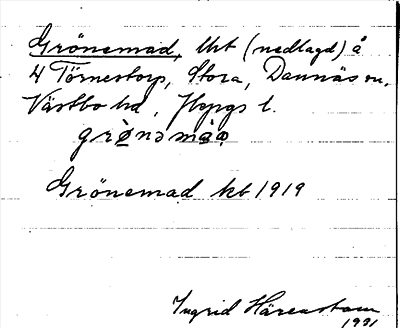 Grönemad, lht (nedlagd) å
4 Törnestorp, Stora, Dannäs sn,
Västbo hd, Jkpgs l.
Grönemad kb 1919
Ingrid Härenstam
1991